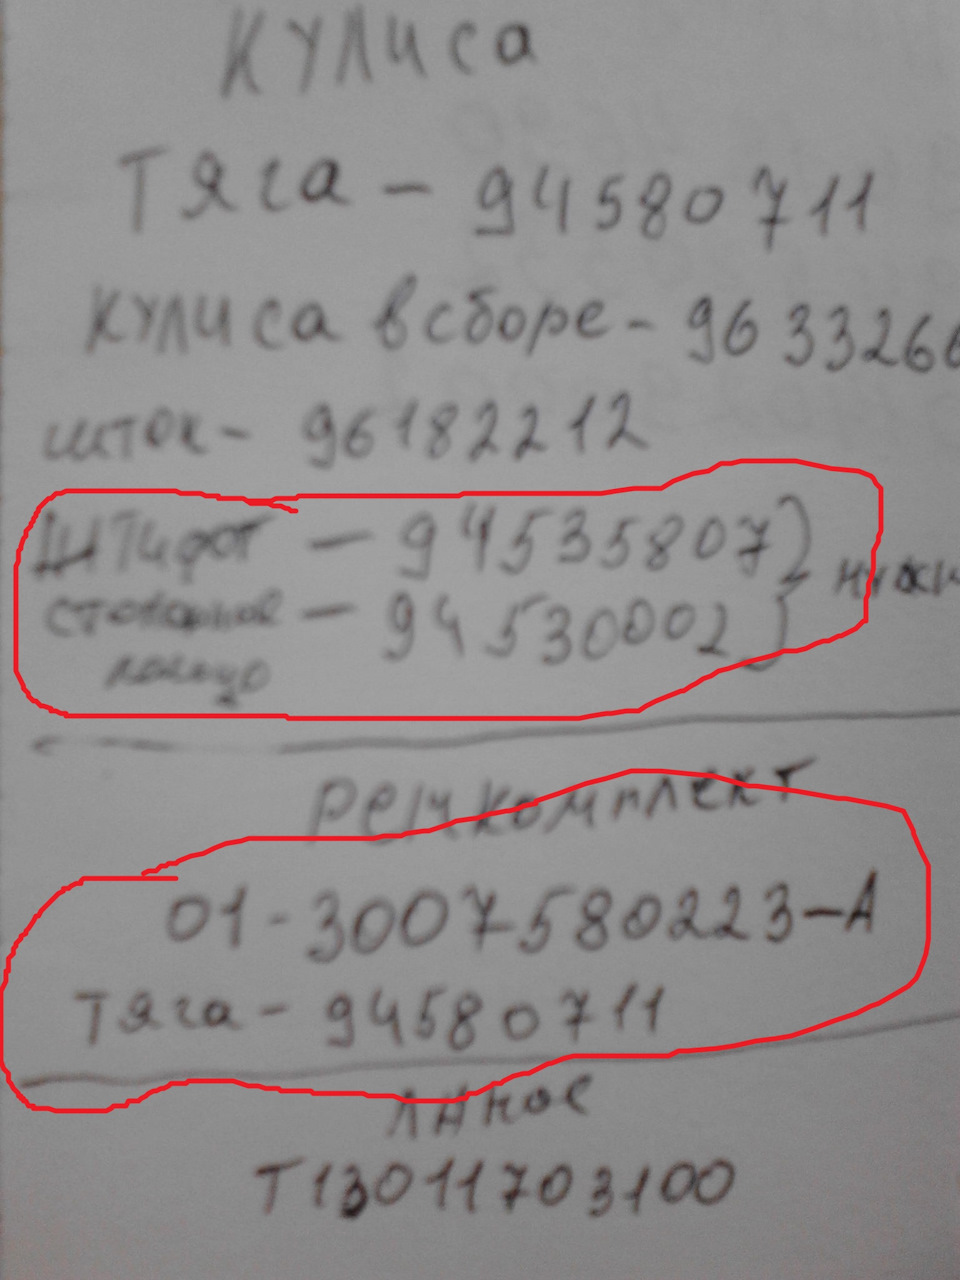 кулиса
тяга - 94580711
кулиса в сборе - 9633266
шток - 96182212
штифт - 94535807
стопорное - 94530002
кольцо
ремкомплект
01-3007580223-А
тяга - 94580711
Т13011703100